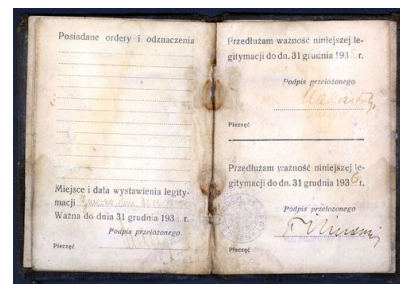 Posiadane ordery i odznaczenia
Miejsce i data wystawienia legity-
macji
Ważna do dnia 31 grudnia 193 r.
Podpis przełożonego
Pieczęć
Przedłużam ważność niniejszej le-
gitymacji do dn. 31 grudnia 193 r.
Podpis przełożonego
Pieczęć
Przedłużam ważność niniejszej le-
gitymacji do dn. 31 grudnia 1936 r.
Podpis przełożonego
Pieczęć